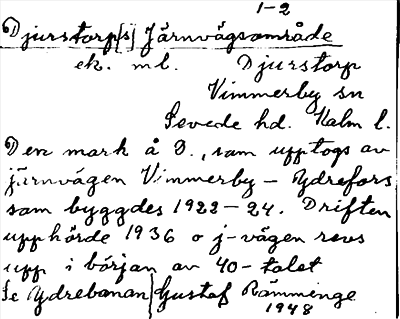 1-2
Djurstorp[s] Järnvägsområde
ek. ml. Djurstorp
Vimmerby sn
Sevede hd. Kalm l.
Den mark å D., som upptogs av
järnvägen Vimmerby – Ydrefors
som byggdes 1922–24. Driften
upphörde 1936 o j-vägen revs
upp i början av 40-talet
Se Ydrebanan | Gustaf Rämminge
1948